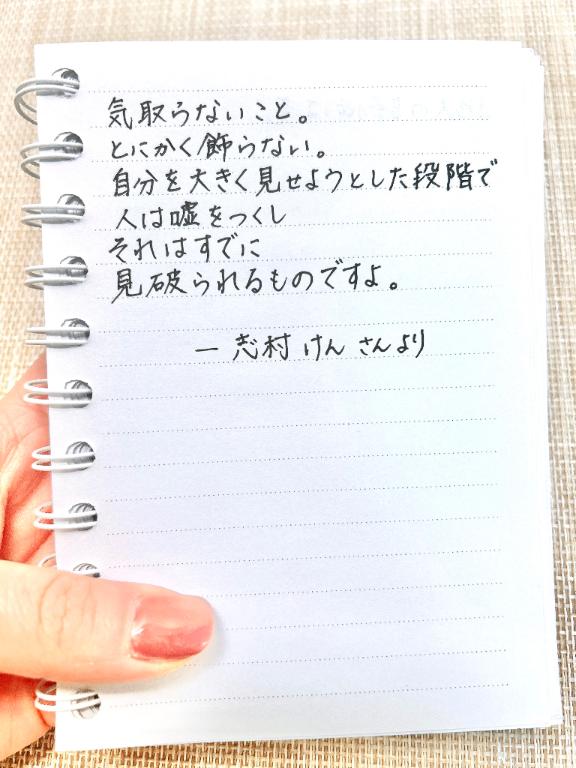 気取らないこと。
とにかく飾らない。
自分を大きく見せようとした段階で
人は嘘をつくし
それはすでに
見破られるものですよ。
― 志村けんさんより